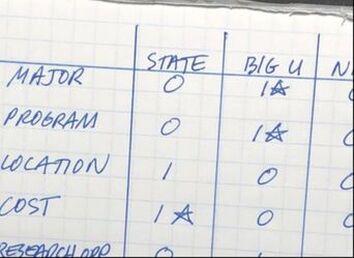 STATE BIG U N
MAJOR 0 1☆
PROGRAM 0 1☆
LOCATION 1 0
COST 1☆ 0
RESEARCH OPP